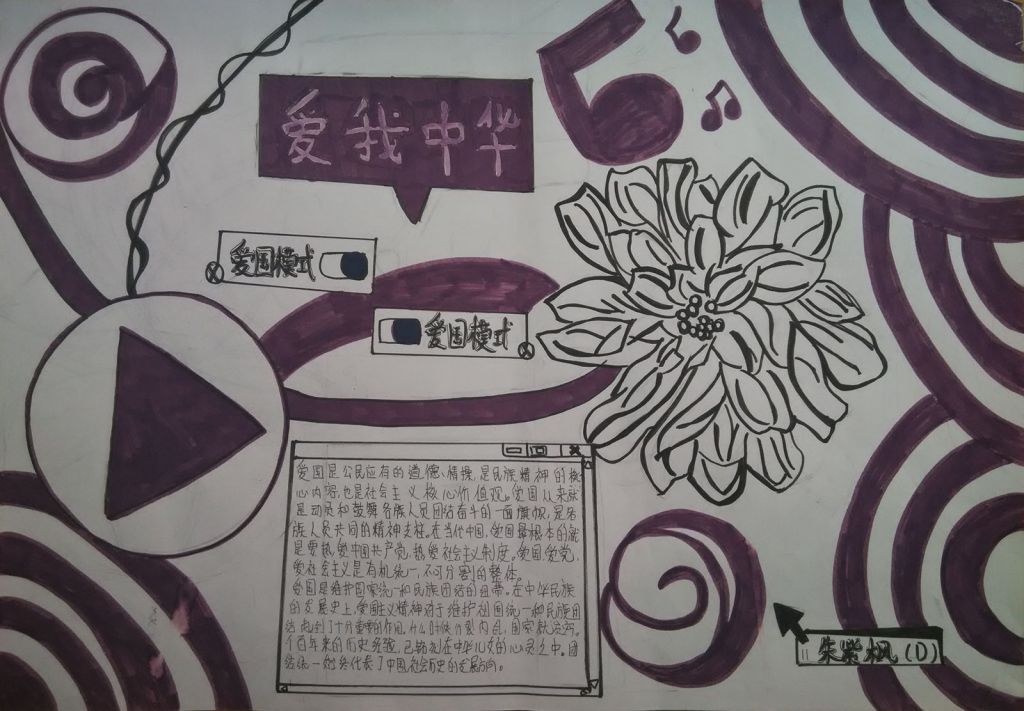 爱我中华
爱国模式
爱国模式
爱国是公民应有的道德、情操,是民族精神的核
心内容,也是社会主义核心价值观。爱国从来就
是动员和鼓舞各族人民团结奋斗的一面旗帜,是各
族人民共同的精神支柱。在当代中国,爱国最根本的就
是要热爱中国共产党,热爱社会主义制度。爱国、爱党、
爱社会主义是有机统一,不可分割的整体。
爱国是维护国家统一和民族团结的纽带。在中华民族
的发展史上,爱国主义精神对于维护祖国统一和民族团
结,起到了十分重要的作用,什么时候分裂内乱,国家就
个百年来的历史经验,已铭刻在中华儿女的心灵之中。团
结统一始终代表了中国社会历史的发展方向。
朱紫枫(D)